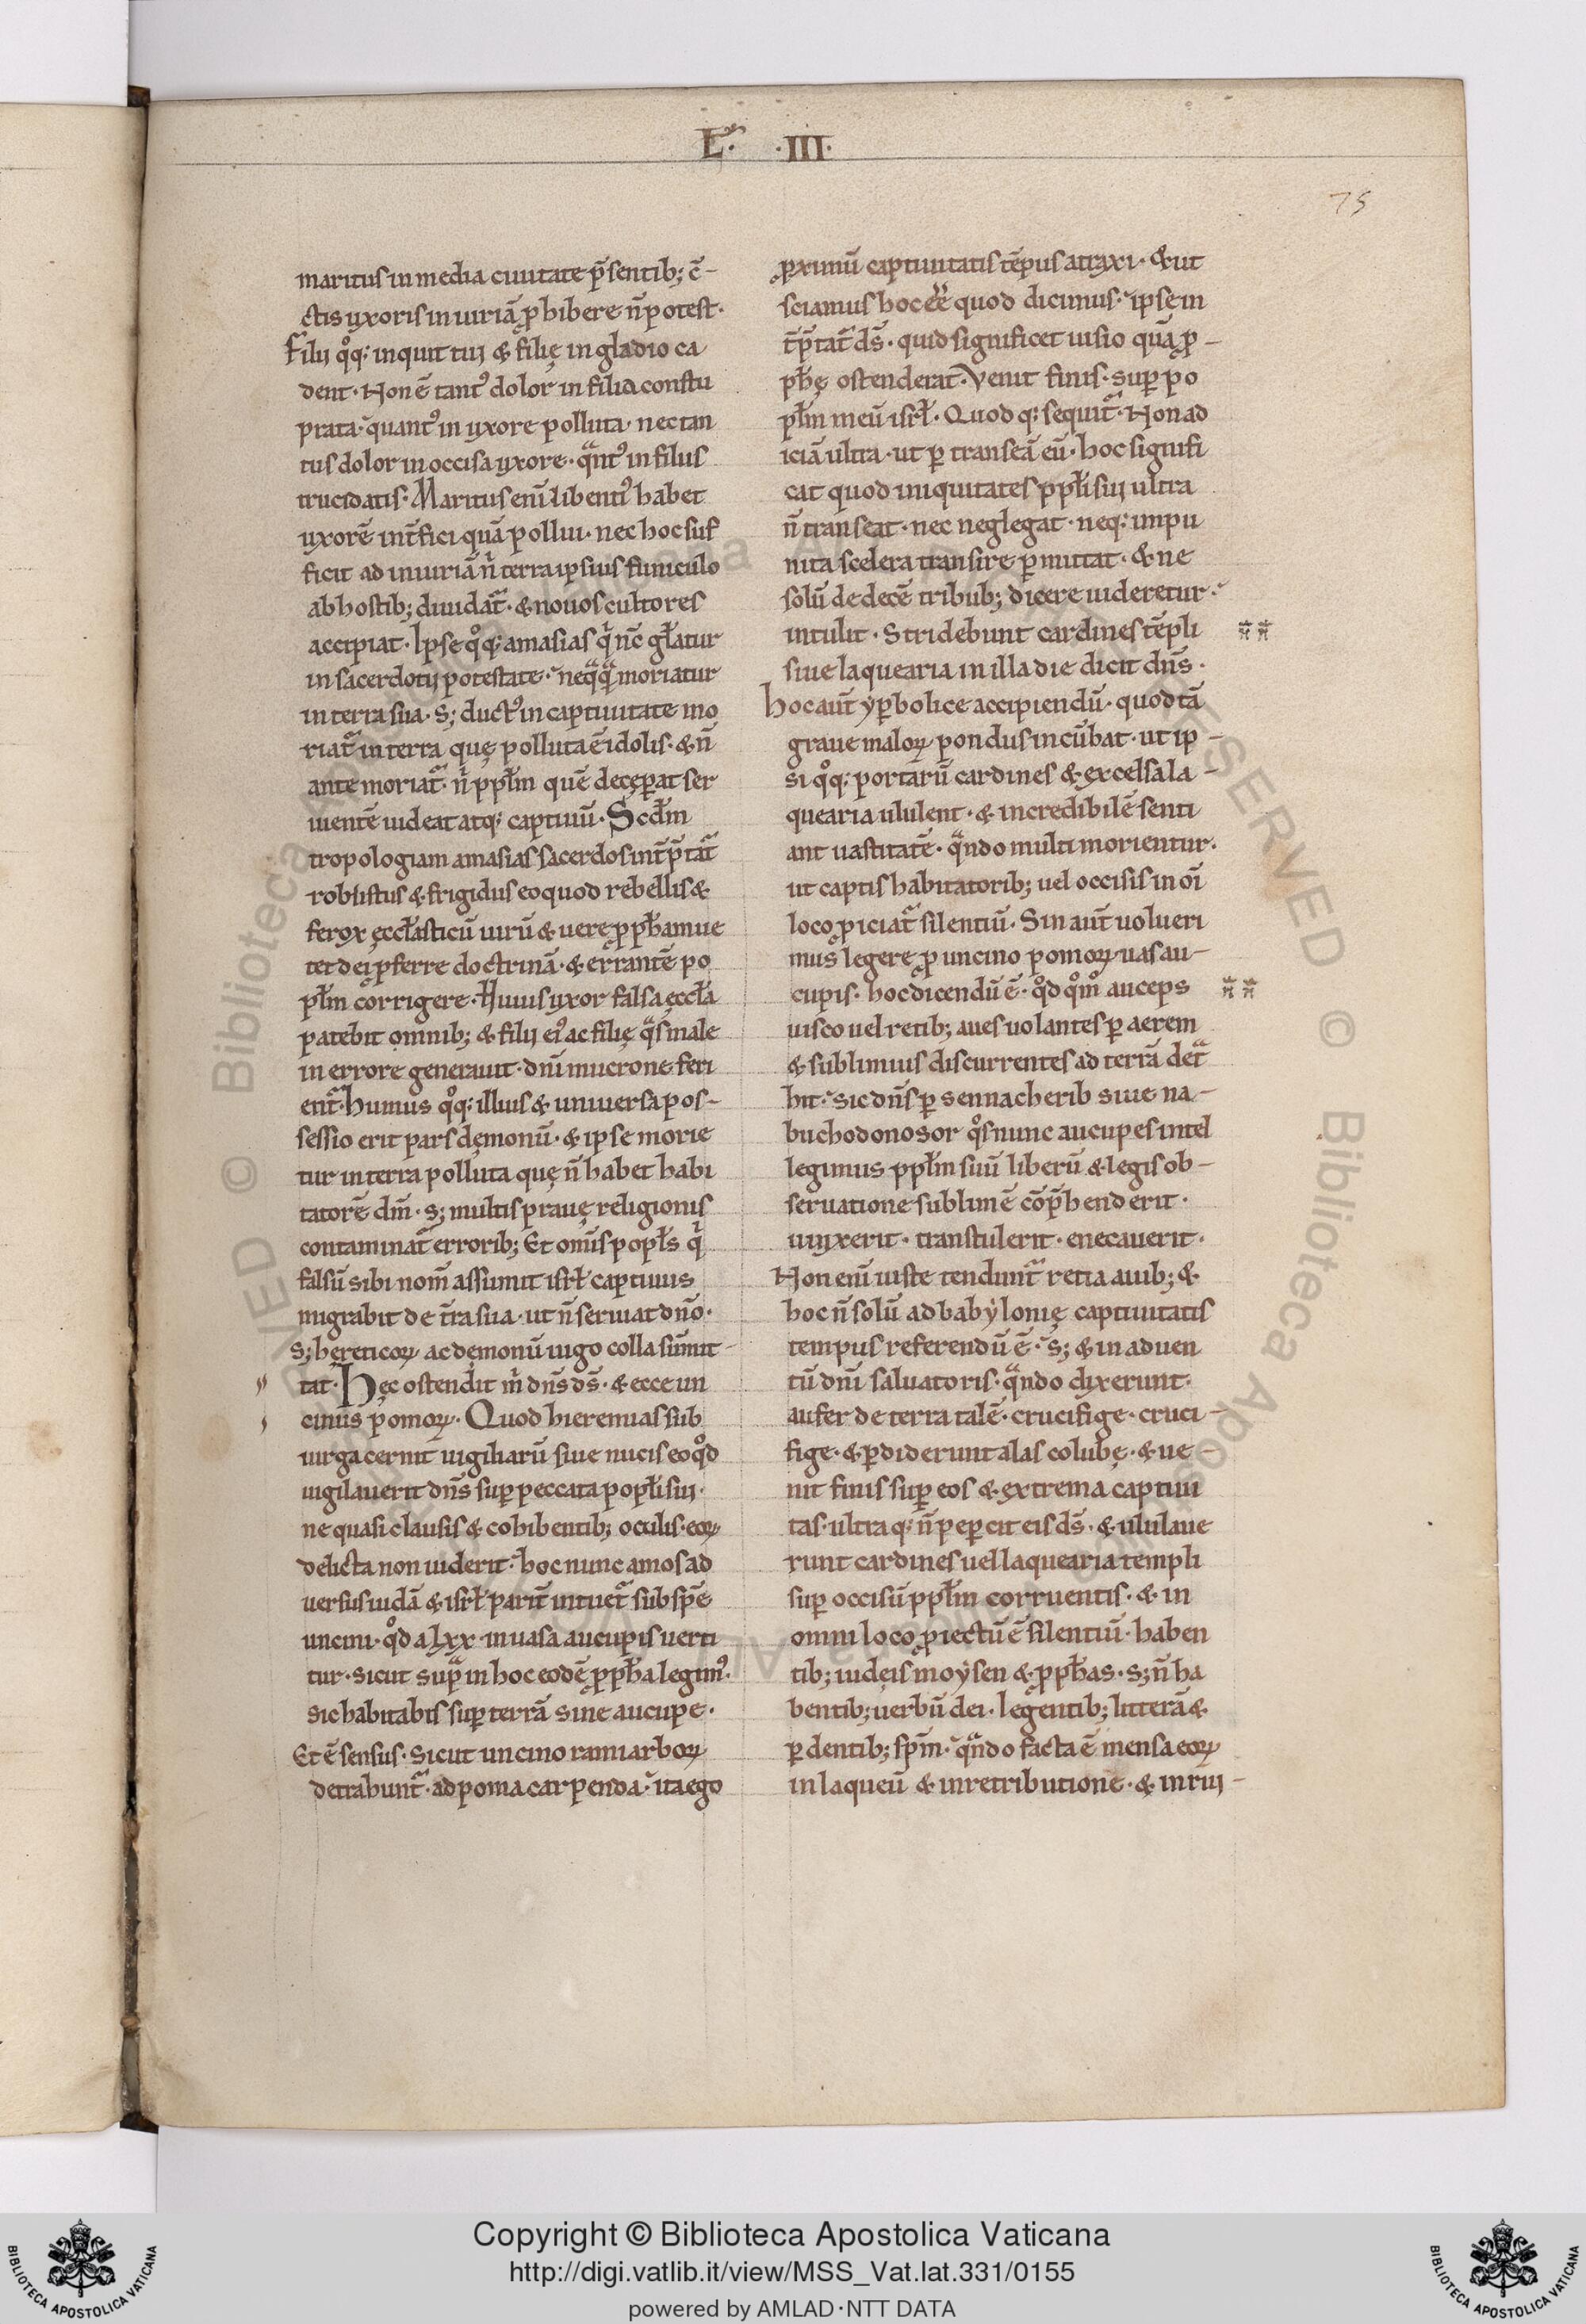 L. ·III·
75
maritus in media ciuitate p̄sentib; cū-
ctis uxoris iniuriā ꝓhibere n̄ potest·
Filij qͦq; inquit tui & filię in gladio ca
dent· Non ē tantꝰ dolor in filia constu
prata· quantꝰ in uxore polluta· nec tan
tus dolor in occisa uxore· qͣntꝰ in filiis
trucidatis· Maritus eni͂ libentiꝰ habet
uxorē int̄fici quā pollui· nec hoc suf
ficit ad iniuriā nͥ terra ipsius funiculo
ab hostib; diuidat̄· & nouos cultores
accipiat· Ipse qͦq; amasias qͥ nc̄ gl̄atur
in sacerdotij potestate· neqͣqͣ moriatur
in terra sua· s; ductꝰ in captiuitate mo
riat̄ in terra quę polluta ē idolis· & n̄
ante moriat̄· nͥ ppl̄m quē decęꝑat ser
uientē uideat atq; captiuū· Scdm̄
tropologiam amasias sacerdos int̄p̄tat̄
robustus & frigidus eo quod rebellis &
ferox ęccl̄asticū uirū & uere ꝓph̄am ue
tet dei ꝓferre doctrinā· & errantē po
pl̄m corrigere· Huius uxor falsa ęccl̄a
patebit omnib; & filij eiꝰ ac filię qͣs male
in errore generauit· dn̄i mucrone feri
ent̄· humus qͦq; illius & uniuersa pos-
sessio erit pars dęmonū· & ipse morie
tur in terra polluta quę n̄ habet habi
tatorē dm̄· s; multis prauę religionis
contaminat̄ errorib; Et omīs popl̄s qͥ
falsū sibi nom̄ assumit isrl̄ captiuus
migrabit de t̄ra sua· ut n̄ seruiat dn̄o·
s; hęreticoꝝ ac dęmonū iugo colla sūmit-
tat· Hęc ostendit mͥ dn̄s ds̄· & ecce un
cinus pomoꝝ· Quod hieremias sub
uirga cernit uigiliarū siue nucis eo qͦd
uigilauerit dn̄s suꝑ peccata popl̄i sui·
ne quasi clausis & cohibentib; oculis eoꝝ
delicta non uiderit· hoc nunc amos ad
uersus iudā & isrl̄ parit̄ intuet̄ sub spē
uncini· qͦd a lxx in uasa aucupis uerti
tur· sicut supͣ in hoc eodē ꝓph̄a legimꝰ·
sic habitabis suꝑ terrā sine aucupe·
Et ē sensus· Sicut uncino rami arboꝝ
detrahunt̄· ad poma carpenda· ita ego
ꝓximū captiuitatis tēpus atraxi· & ut
sciamus hoc ēē quod dicimus· ipse in
t̄p̄tat̄ ds̄· quid significet uisio quā ꝓ-
ph̄ę ostenderat· Venit finis· suꝑ po
pl̄m meū isrl̄· Quod q; sequit̄· Non ad
iciā ultra· ut ꝑtranseā eū· hoc signifi
cat quod iniquitates ppl̄i sui ultra
n̄ transeat· nec neglegat· neq; impu
nita scelera transire ꝑmittat· & ne
solū de decē tribub; dicere uideretur·
intulit· Stridebunt cardines tēpli
siue laquearia in illa die dicit dn̄s·
hoc aūt yꝑbolice accipiendū· quod tā
graue maloꝝ pondus incūbat· ut ip-
si qͦq; portarū cardines & excelsa la-
quearia ululent· & incredibilē senti
ant uastitatē· qͣndo multi morientur·
ut captis habitatorib; uel occisis in oī
loco ꝓiciat̄ silentiū· Sin aūt uolueri
mus legere ꝓ uncino pomoꝝ uas au-
cupis· hoc dicendū ē· qͦd qͦm̄ auceps
uisco uel retib; aues uolantes ꝑ aerem
& sublimius discurrentes ad terrā detͣ
hit· sic dn̄s ꝑ sennacherib siue na-
buchodonosor qͦs nunc aucupes intel
legimus ppl̄m suū liberū & legis ob-
seruatione sublimē cōp̄henderit·
uinxerit· transtulerit· enecauerit·
Non eni͂ iuste tendunt̄ retia auib; &
hoc n̄ solū ad babylonię captiuitatis
tempus referendū ē· s; & in aduen
tū dn̄i saluatoris· qͣndo dixerunt·
aufer de terra talē· crucifige· cruci-
fige· & ꝑdiderunt alas columbę· & ue-
nit finis suꝑ eos & extrema captiui
tas· ultra q; n̄ peꝑcit eis ds̄· & ululaue
runt cardines uel laquearia templi
suꝑ occisū ppl̄m corruentis· & in
omni loco ꝓiectū ē silentiū· haben
tib; iudęis moysen & ꝓph̄as· s; n̄ ha
bentib; uerbū dei· legentib; litterā &
ꝑdentib; spm̄· qͣndo facta ē mensa eoꝝ
in laqueū & in retributione· & in rui-
© Biblioteca Apostolica Vaticana
Copyright © Biblioteca Apostolica Vaticana
http://digi.vatlib.it/view/MSS_Vat.lat.331/0155
powered by AMLAD·NTT DATA
BIBLIOTECA APOSTOLICA VATICANA
BIBLIOTECA APOSTOLICA VATICANA